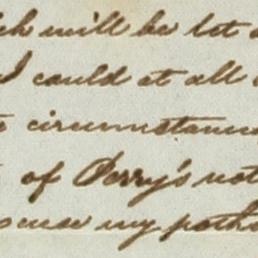 ch will be let
I could at all
circumstance
of Perry's not
my path